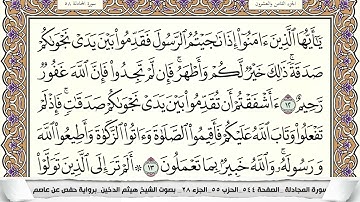 سورة المجادلة ٥٨
الجزء الثامن والعشرون
يَٰٓأَيُّهَا ٱلَّذِينَ ءَامَنُوٓا۟ إِذَا نَٰجَيْتُمُ ٱلرَّسُولَ فَقَدِّمُوا۟ بَيْنَ يَدَىْ نَجْوَىٰكُمْ
صَدَقَةً ۚ ذَٰلِكَ خَيْرٌ لَّكُمْ وَأَطْهَرُ ۚ فَإِن لَّمْ تَجِدُوا۟ فَإِنَّ ٱللَّهَ غَفُورٌ
رَّحِيمٌ ١٢ ءَأَشْفَقْتُمْ أَن تُقَدِّمُوا۟ بَيْنَ يَدَىْ نَجْوَىٰكُمْ صَدَقَٰتٍ ۚ فَإِذْ لَمْ
تَفْعَلُوا۟ وَتَابَ ٱللَّهُ عَلَيْكُمْ فَأَقِيمُوا۟ ٱلصَّلَوٰةَ وَءَاتُوا۟ ٱلزَّكَوٰةَ وَأَطِيعُوا۟ ٱللَّهَ
وَرَسُولَهُۥ ۚ وَٱللَّهُ خَبِيرٌۢ بِمَا تَعْمَلُونَ ١٣ ۞ أَلَمْ تَرَ إِلَى ٱلَّذِينَ تَوَلَّوْا۟
سورة المجادلة _ الصفحة ٥٤٤ _ الحزب ٥٥ _ الجزء ٢٨ _ بصوت الشيخ هيثم الدخين _ برواية حفص عن عاصم